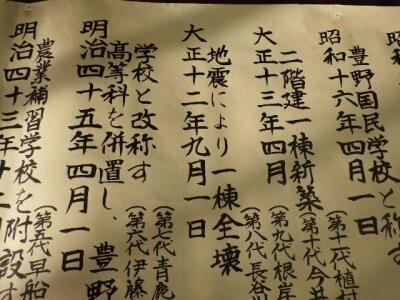 昭和
豊野国民学校と称す
昭和十六年四月一日
(第十代植村
(第十代今井
二階建一棟新築
(第九代根岸
大正十三年四月
(第八代長谷川
地震により一棟全壊
大正十二年九月一日
(第七代青鹿
学校と改称す
(第六代伊藤
高等科を併置し、豊野
明治四十五年四月一日
(第五代早船
農業補習学校を附設す
明治四十三年十二